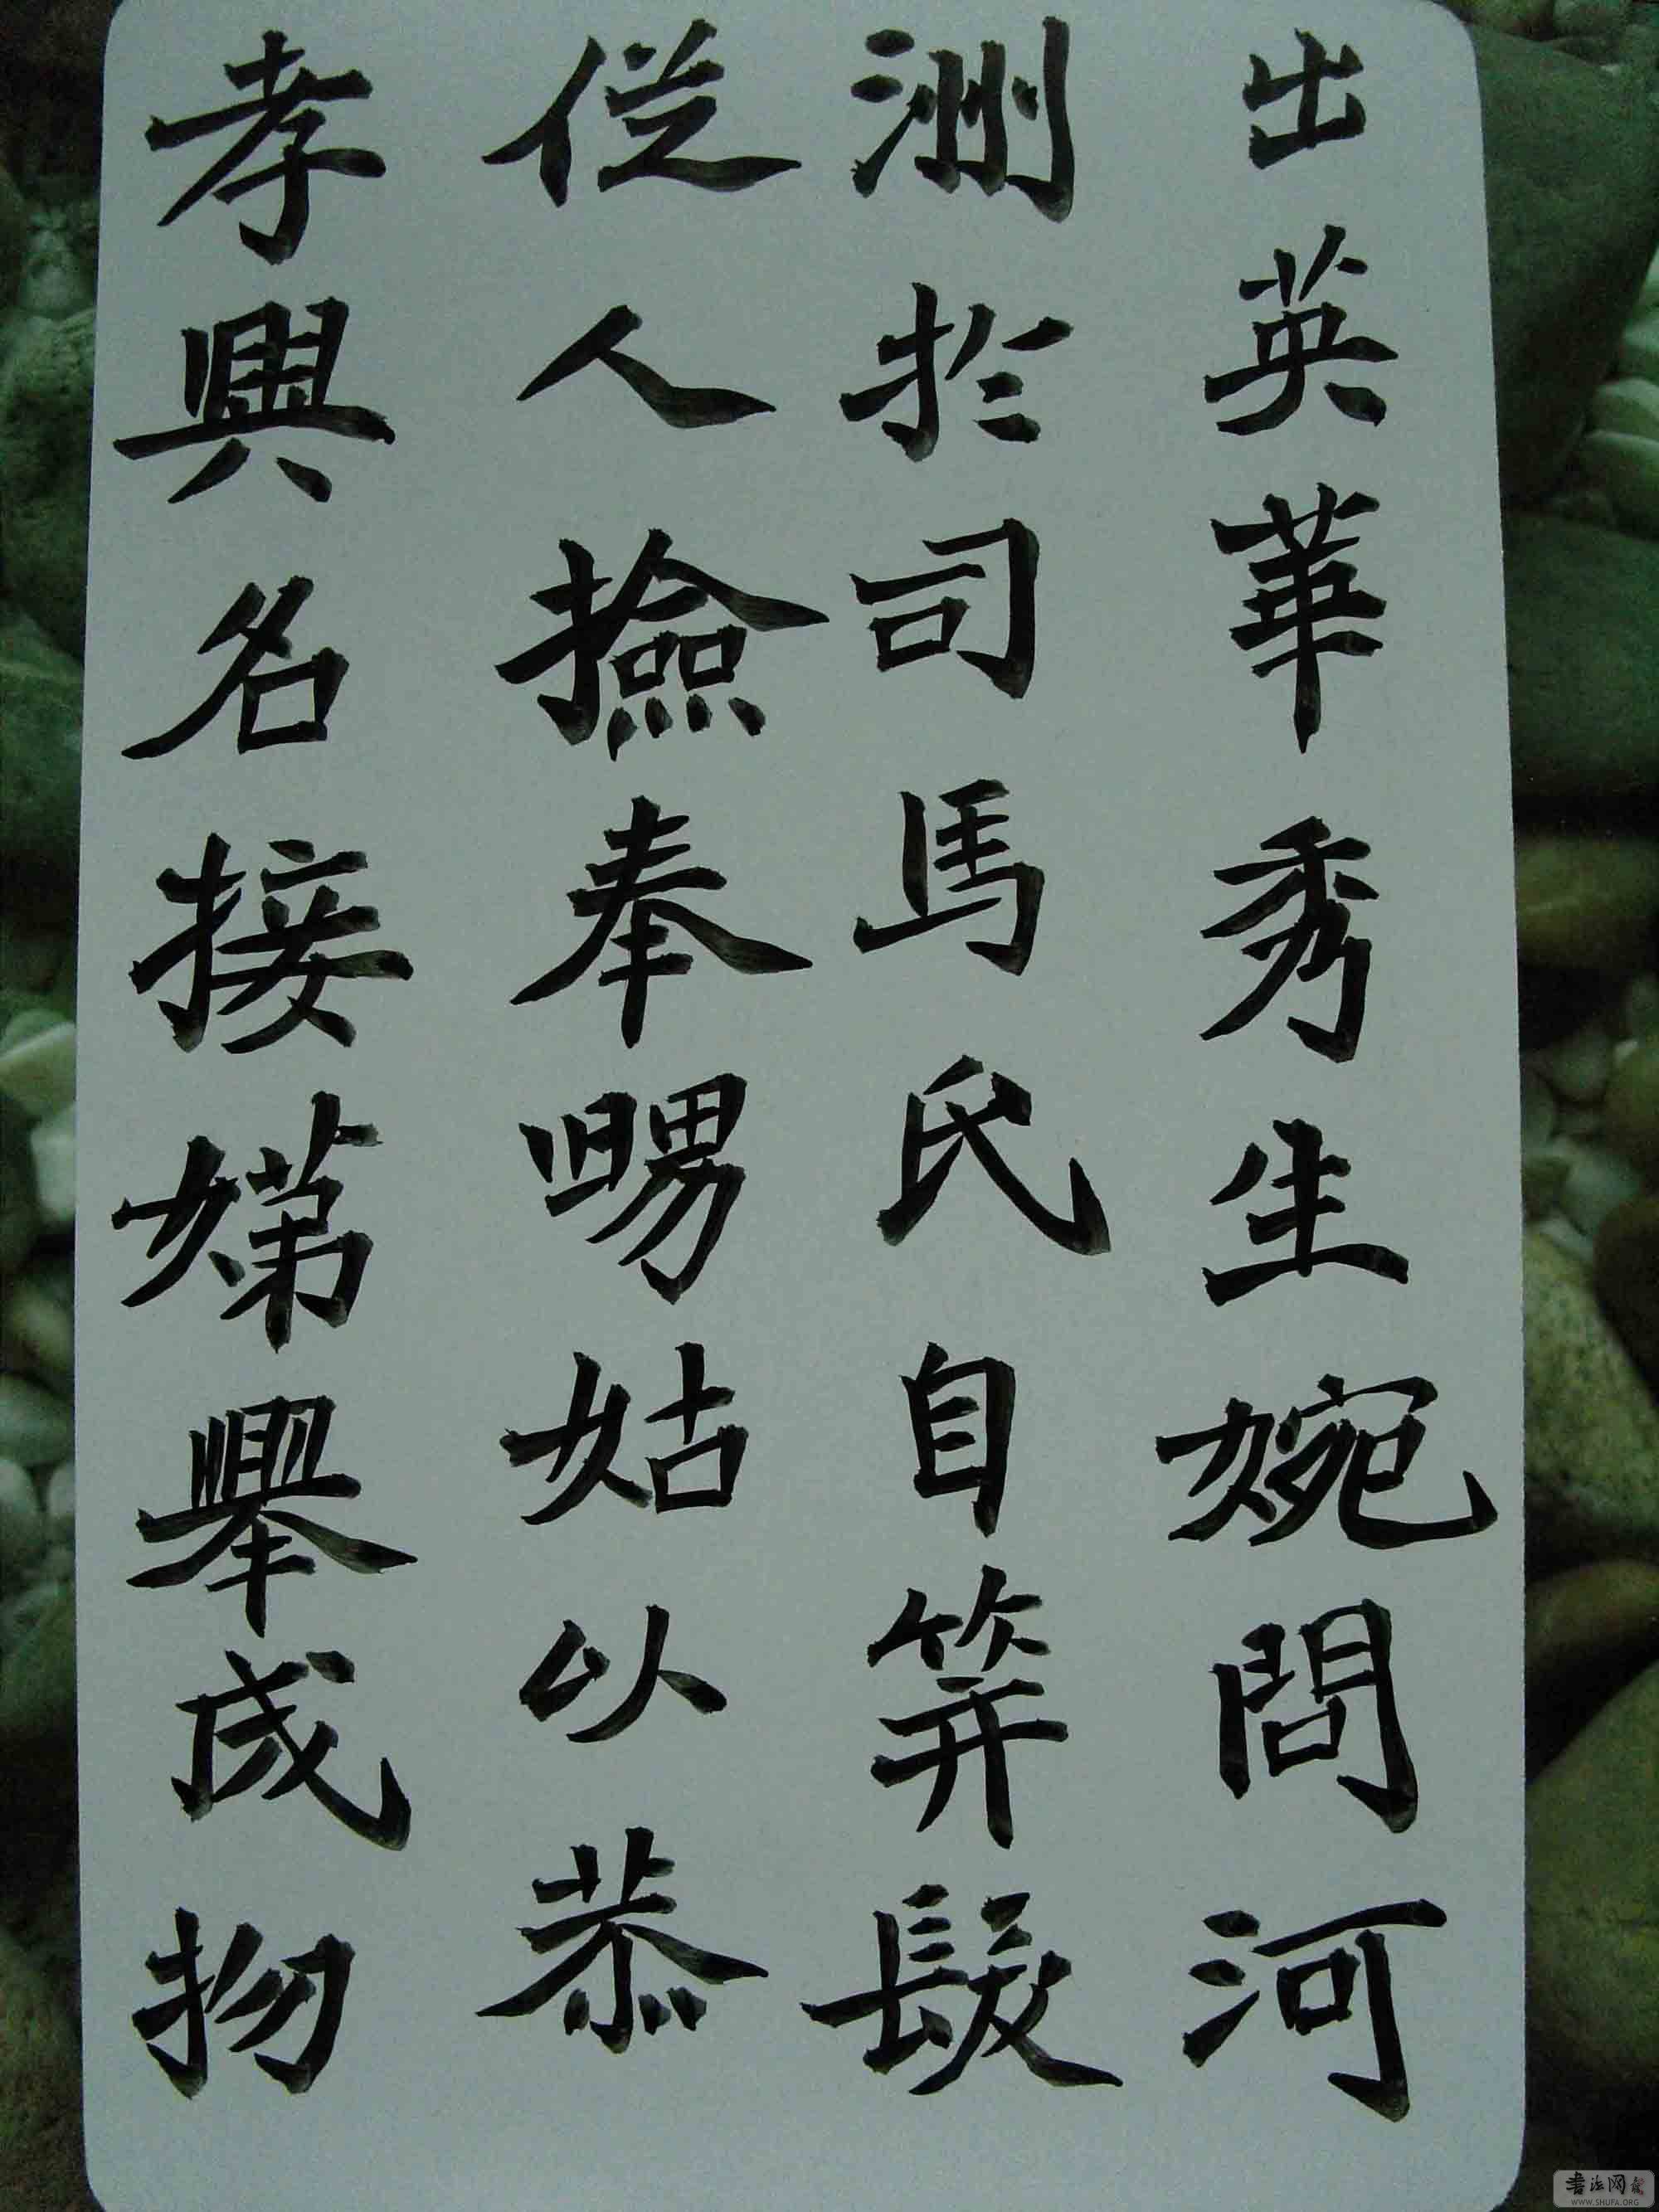 出英華秀生婉問河
洲扵司馬氏自笄髮
従人撿奉㽒姑以恭
孝興名接娣舉成物
書法网
WWW.SHUFA.ORG